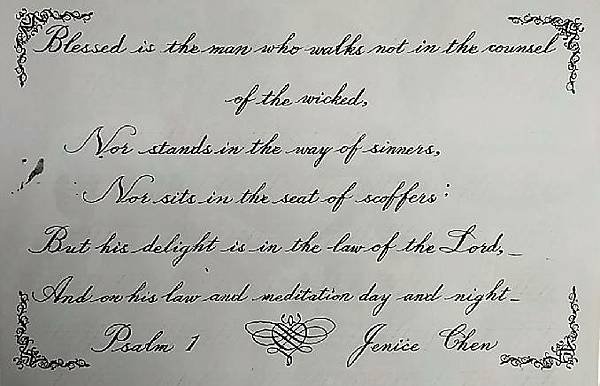 Blessed is the man who walks not in the counsel
of the wicked,
Nor stands in the way of sinners,
Nor sits in the seat of scoffers:
But his delight is in the law of the Lord,_
And on his law and meditation day and night_
Psalm 1 Jenice Chen